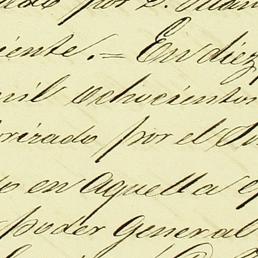 por D. Juan
iente. = En diez
mil ochocientos
rizado por el
o en aquella
poder general